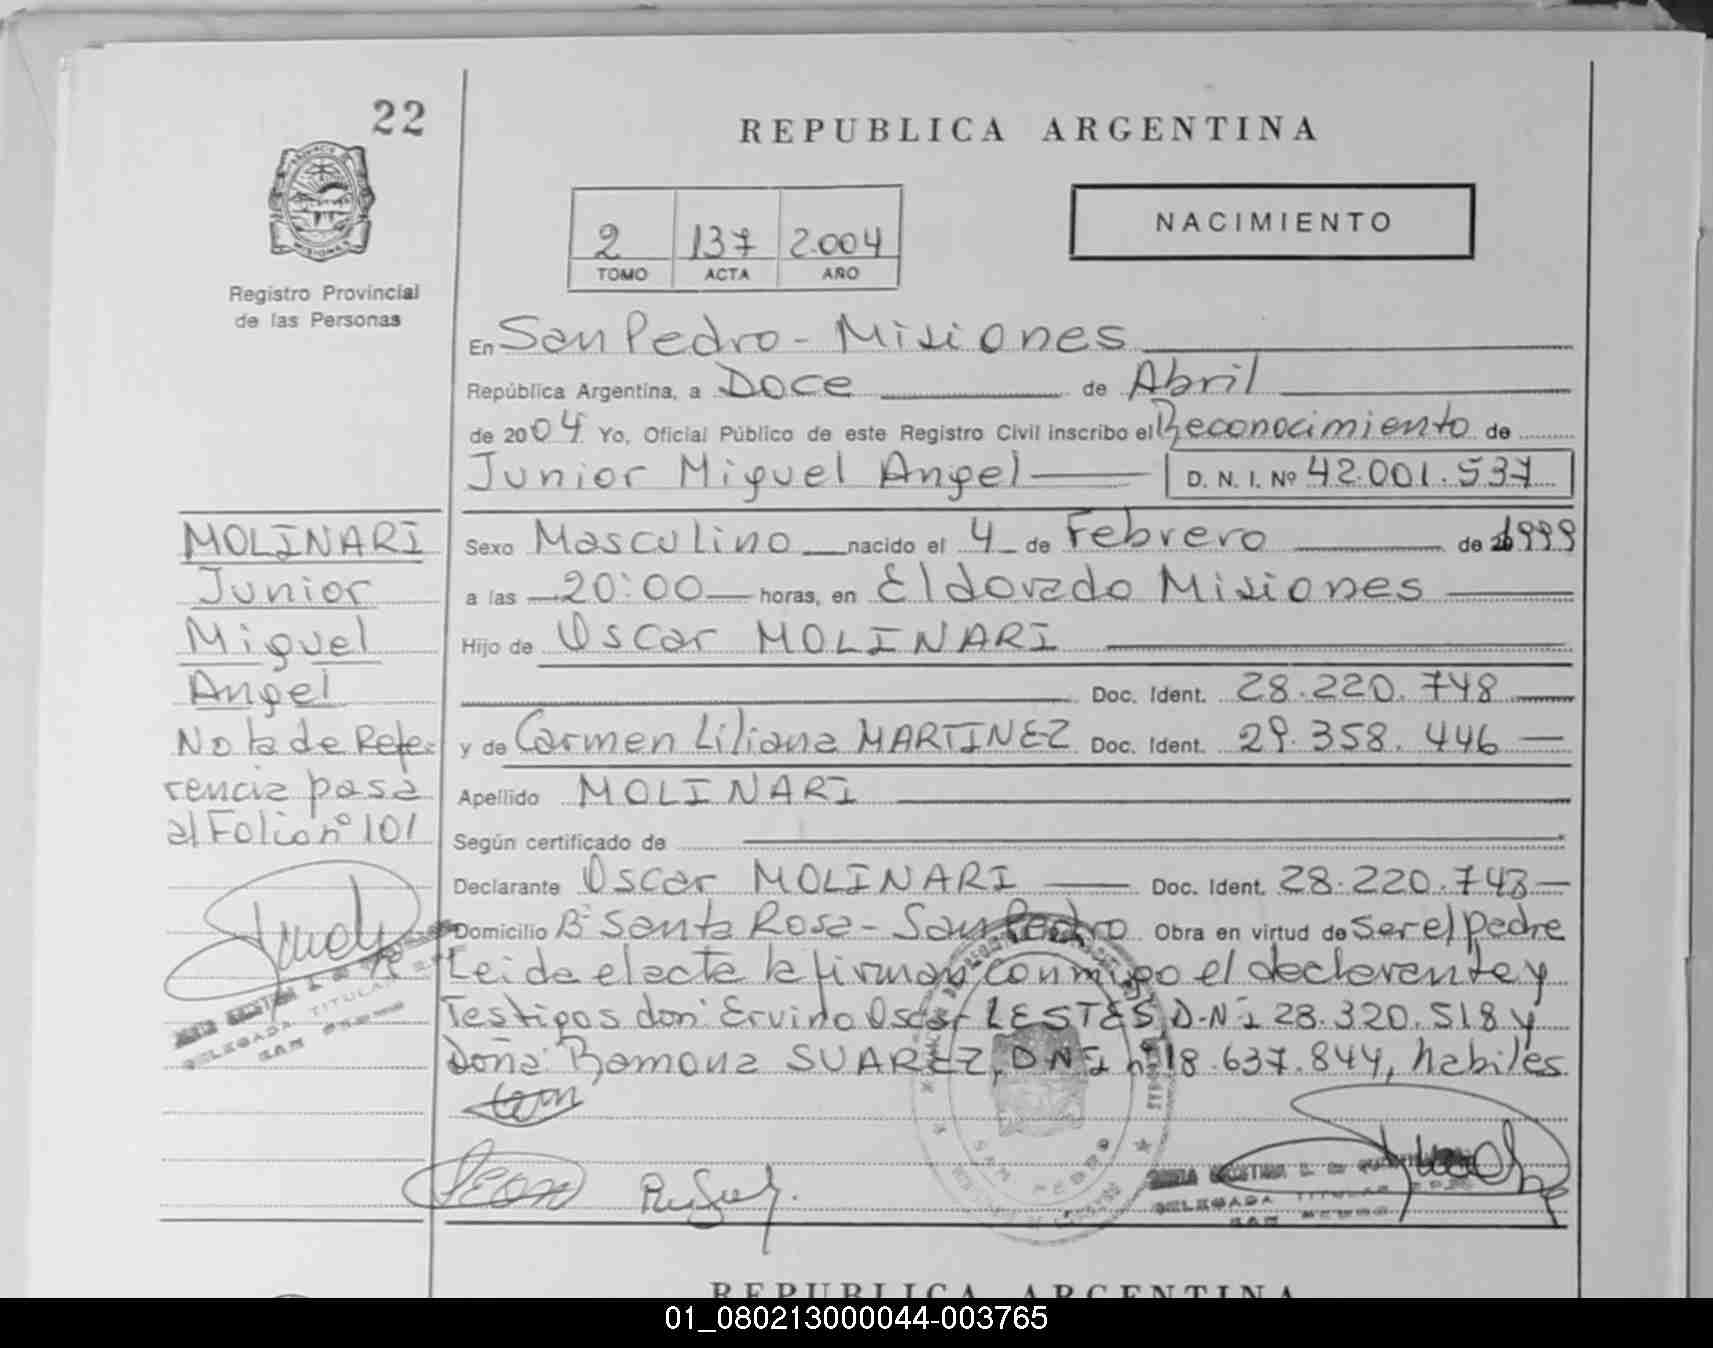 22
REPUBLICA ARGENTINA
NACIMIENTO
2 137 2.004
TOMO ACTA AÑO
Registro Provincial
de las Personas
En San Pedro - Misiones
República Argentina, a Doce de Abril
de 2004 Yo, Oficial Público de este Registro Civil inscribo el Reconocimiento de
Junior Miguel Angel D. N. I. Nº 42.001.537
MOLINARI
Junior
Miguel
Angel
Nota de Refe-
rencia pasa
al Folio nº 101
Sexo Masculino nacido el 4 de Febrero de 1999
a las 20:00 horas, en Eldorado Misiones
Hijo de Oscar MOLINARI
Doc. Ident. 28.220.748
y de Carmen Liliana MARTINEZ Doc. Ident. 29.358.446
Apellido MOLINARI
Según certificado de
Declarante Oscar MOLINARI Doc. Ident. 28.220.748
Domicilio Bº Santa Rosa - San Pedro Obra en virtud de Ser el padre
Leida el acta la firman conmigo el declarante y
Testigos don: Ervino Oscar LESTES, D.N.I 28.320.518 y
Doña: Ramona SUAREZ, D.N.I nº 18.637.844, habiles
DELEGADA TITULAR
SAN PEDRO
DELEGADA TITULAR
SAN PEDRO
SAN PEDRO
REPUBLICA ARGENTINA
01_080213000044-003765